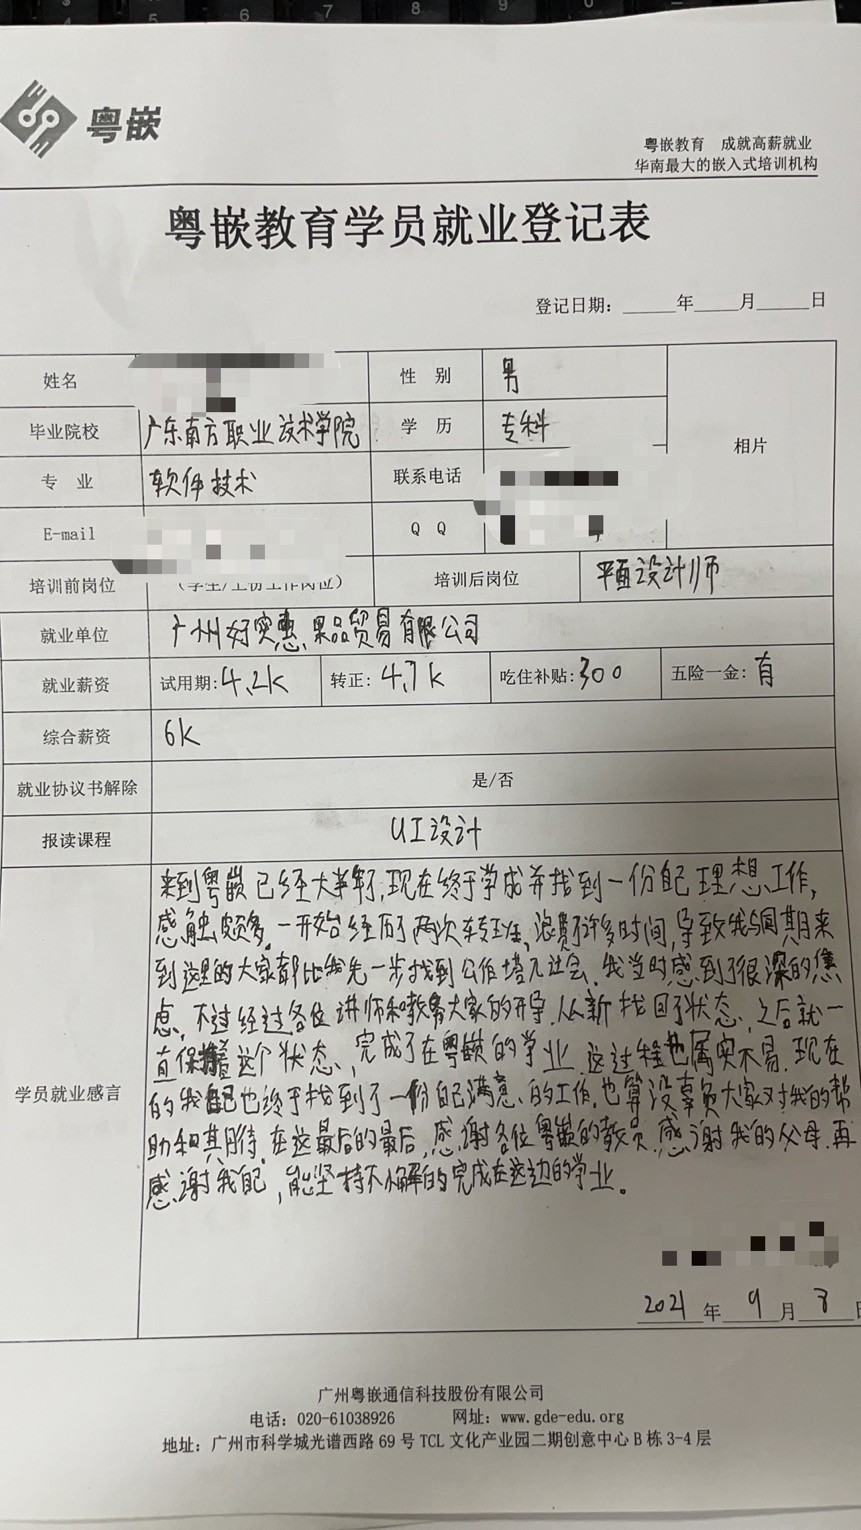 粤嵌
粤嵌教育 成就高薪就业
华南最大的嵌入式培训机构
粤嵌教育学员就业登记表
登记日期：______年_____月______日
姓名 性 别 男
毕业院校 广东南方职业技术学院 学 历 专科
相片
专 业 软件技术 联系电话
E-mail Q Q
培训前岗位 （学生/上份工作岗位） 培训后岗位 平面设计师
就业单位 广州好实惠果品贸易有限公司
就业薪资 试用期：4.2K 转正：4.7K 吃住补贴：300 五险一金：有
综合薪资 6K
就业协议书解除 是/否
报读课程 UI设计
学员就业感言
来到粤嵌已经大半年了，现在终于学成并找到一份自己理想工作，
感触颇多。一开始经历了两次转班，浪费了许多时间，导致我与同期来
到这里的大家都比我先一步找到工作塔入社会，我当时感到了很深的焦
虑，不过经过各位讲师和教务大家的开导，从新找回了状态，之后就一
直保持着这个状态，完成了在粤嵌的学业，这过程也属实不易，现在
的我自己也终于找到了一份自己满意的工作，也算没辜负大家对我的帮
助和其期待，在这最后的最后，感谢各位粤嵌的教员，感谢我的父母，再
感谢我自己，能坚持不懈的完成在这边的学业。
2021 年 9 月 8 日
广州粤嵌通信科技股份有限公司
电话：020-61038926 网址：www.gde-edu.org
地址：广州市科学城光谱西路 69 号 TCL 文化产业园二期创意中心 B 栋 3-4 层